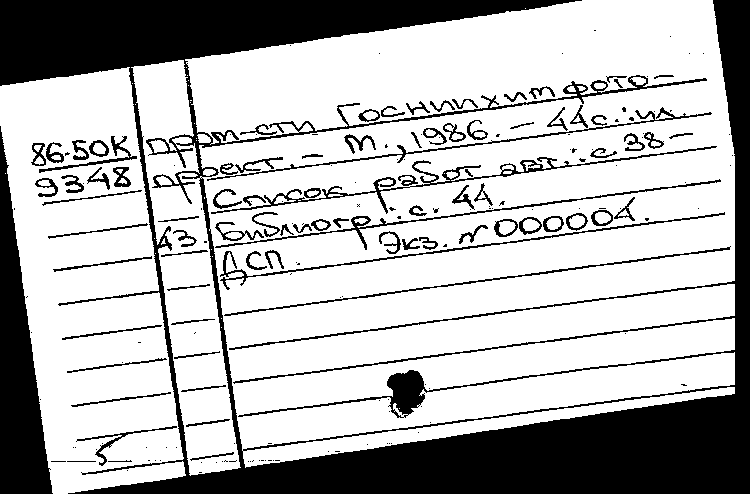 86-50К пром-сти Госниихимфото-
9348 проект. - М., 1986. - 44с.: ил.
Список работ авт.: с. 38-
43. Библиогр.: с. 44.
ДСП. Экз. N 000004.
5